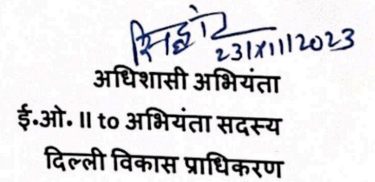 23/XI/2023
अधिशासी अभियंता
ई.ओ. II to अभियंता सदस्य
दिल्ली विकास प्राधिकरण